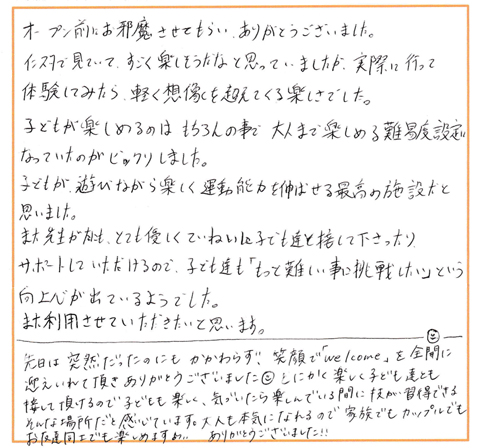 オープン前にお邪魔させてもらい、ありがとうございました。
インスタで見ていて、すごく楽しそうだなと思っていましたが、実際に行って
体験してみたら、軽く想像を超えてくる楽しさでした。
子どもが楽しめるのは もちろんの事で 大人まで楽しめる難易度設定に
なっていたのがビックリしました。
子どもが、遊びながら楽しく運動能力を伸ばせる最高の施設だと
思いました。
また先生方も、とても優しくていねいに子ども達と接して下さったり
サポートしていただけるので、子ども達も「もっと難しい事に挑戦したい」という
向上心が出ているようでした。
また利用させていただきたいと思います。
先日は突然だったのにもかかわらず!! 笑顔で「welcome」を全開に
迎えいれて頂きありがとうございました☺ とにかく楽しく子ども達とも
接して頂けるので子どもも楽しく、気づいたら楽しんでいる間に技が習得できる
そんな場所だと感じています。大人も本気になれるので家族でもカップルでも
お友達同士でも楽しめますね!! ありがとうございました!!